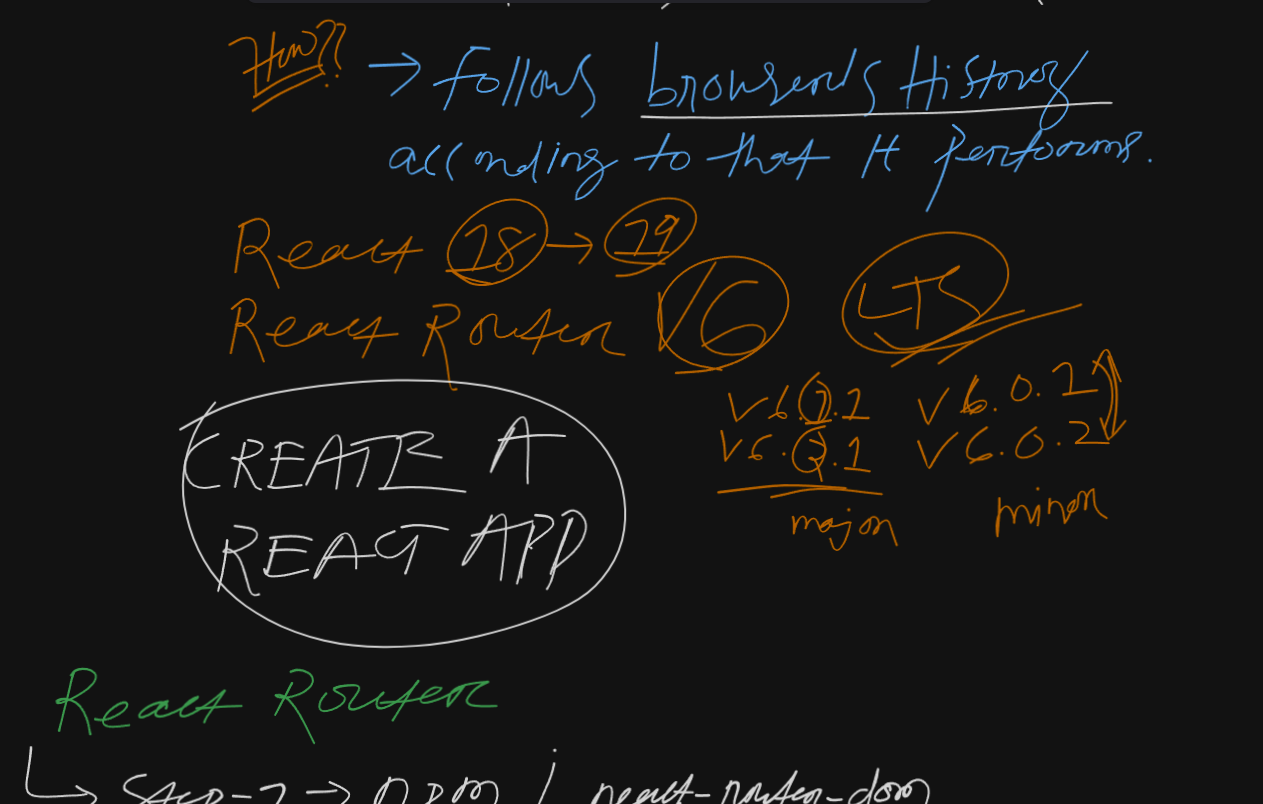 How??
→ Follows browser's History
according to that It performs.
React 18 → 19
React Router V6 LTS
V6.1.1 V6.0.1
V6.2.1 V6.0.2
major minor
CREATE A
REACT APP
React Router
→ Step-1 → npm i react-router-dom